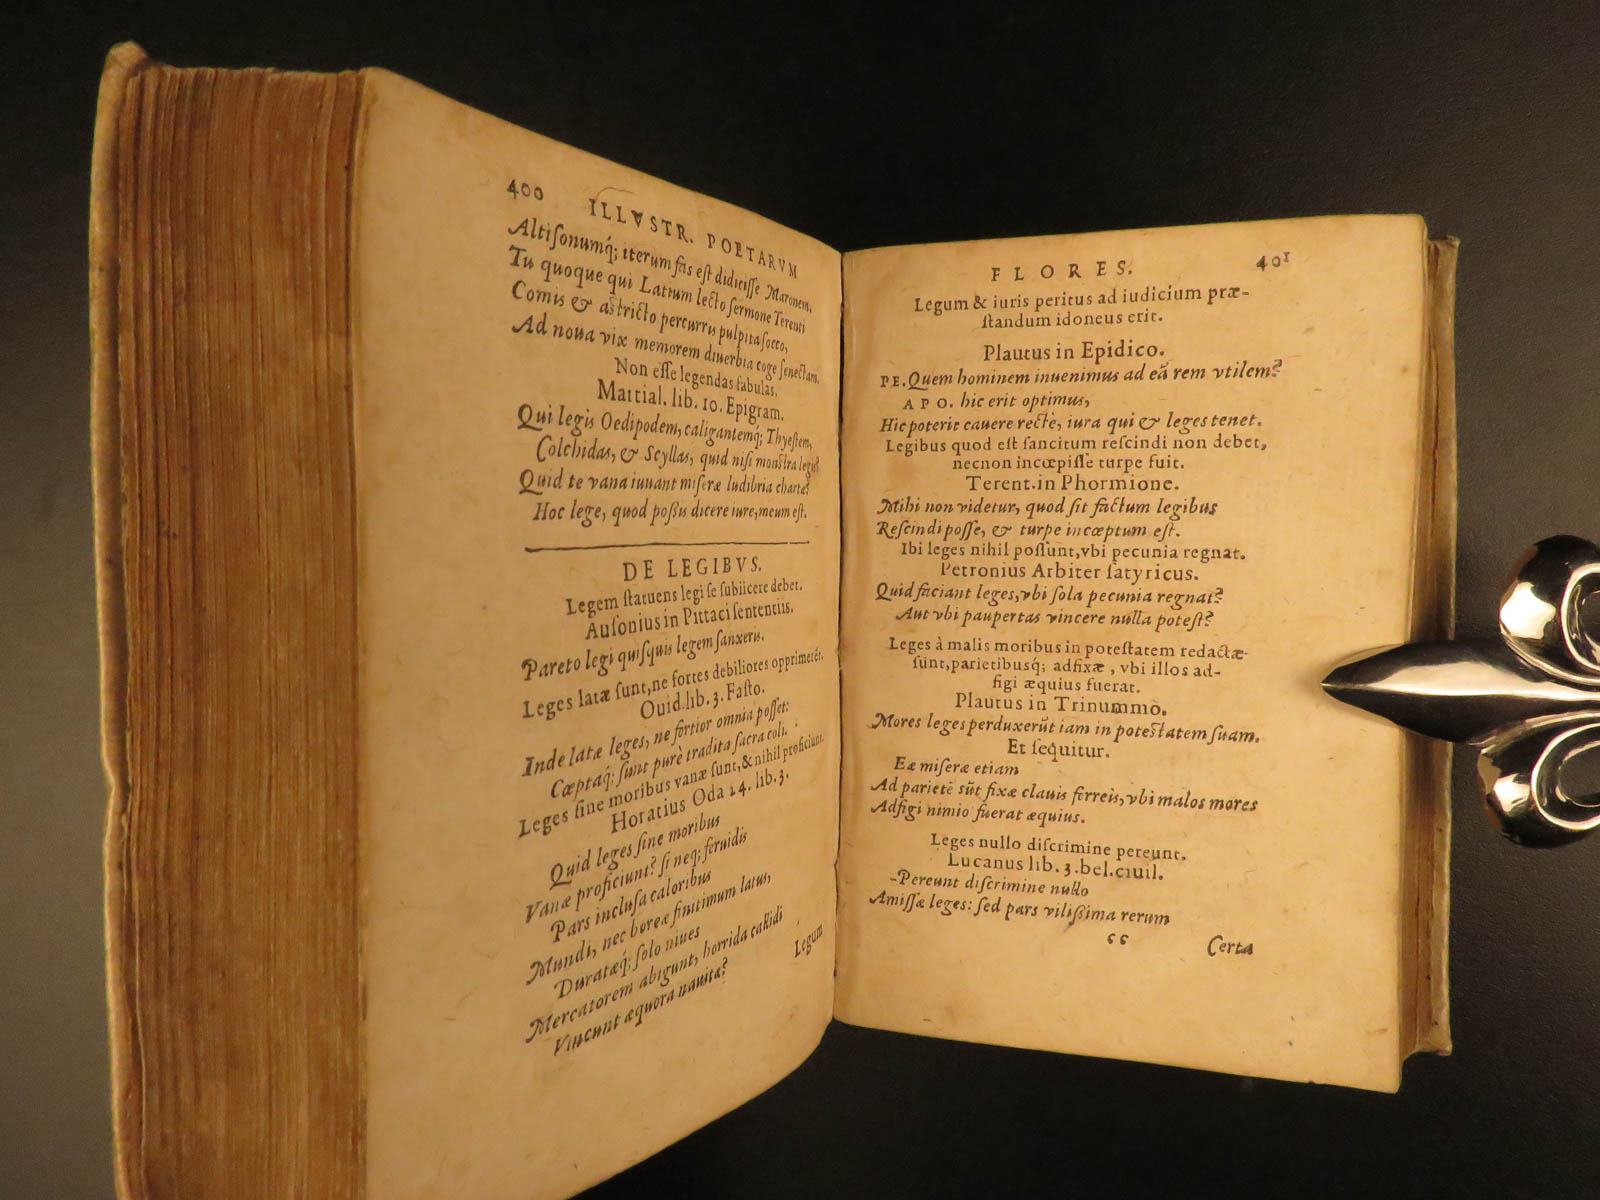 400 ILLVSTR. POETARVM
Altiſonumq́; iterum fas eſt didiciſſe Maronem.
Tu quoque qui Latium lecto ſermone Terenti
Comis & aſtricto percurris pulpita ſocco,
Ad noua vix memorem diuerbia coge ſenectam.
Non eſſe legendas fabulas.
Martial. lib. 10. Epigram.
Qui legis Oedipodem, caligantemq́; Thyeſtem,
Colchidas, & Scyllas, quid niſi monſtra legis?
Quid te vana iuuant miſeræ ludibria chartæ?
Hoc lege, quod poſſis dicere iure, meum eſt.
DE LEGIBVS.
Legem ſtatuens legi ſe ſubiicere debet.
Auſonius in Pittaci ſententiis.
Pareto legi quiſquis legem ſanxeris.
Leges latæ ſunt, ne fortes debiliores opprimerēt.
Ouid. lib. 3. Faſto.
Inde latæ leges, ne fortior omnia poſſet:
Cœptaq́; ſunt purè tradita ſacra coli.
Leges ſine moribus vanæ ſunt, & nihil proficiunt.
Horatius Oda 24. lib. 3.
Quid leges ſine moribus
Vanæ proficiunt? ſi neq; feruidis
Pars incluſa caloribus
Mundi, nec boreæ finitimum latus,
Duratæq́; ſolo niues
Mercatorem abigunt, horrida callidi
Vincunt æquora nauitæ?
Legum
FLORES. 401
Legum & iuris peritus ad iudicium præ-
ſtandum idoneus erit.
Plautus in Epidico.
PE. Quem hominem inuenimus ad eā rem vtilem?
APO. hic erit optimus,
Hic poterit cauere rectè, iura qui & leges tenet.
Legibus quod eſt ſancitum reſcindi non debet,
necnon incœpiſſe turpe fuit.
Terent. in Phormione.
Mihi non videtur, quod ſit factum legibus
Reſcindi poſſe, & turpe incœptum eſt.
Ibi leges nihil poſſunt, vbi pecunia regnat.
Petronius Arbiter ſatyricus.
Quid faciant leges, vbi ſola pecunia regnat?
Aut vbi paupertas vincere nulla poteſt?
Leges à malis moribus in poteſtatem redactæ
ſunt, parietibusq́; adfixæ, vbi illos ad-
figi æquius fuerat.
Plautus in Trinummo.
Mores leges perduxerūt iam in poteſtatem ſuam.
Et ſequitur.
Eæ miſeræ etiam
Ad parietē sūt fixæ clauis ferreis, vbi malos mores
Adfigi nimio fuerat æquius.
Leges nullo diſcrimine pereunt.
Lucanus lib. 3. bel. ciuil.
-Pereunt diſcrimine nullo
Amiſſæ leges: ſed pars viliſſima rerum
cc Certa